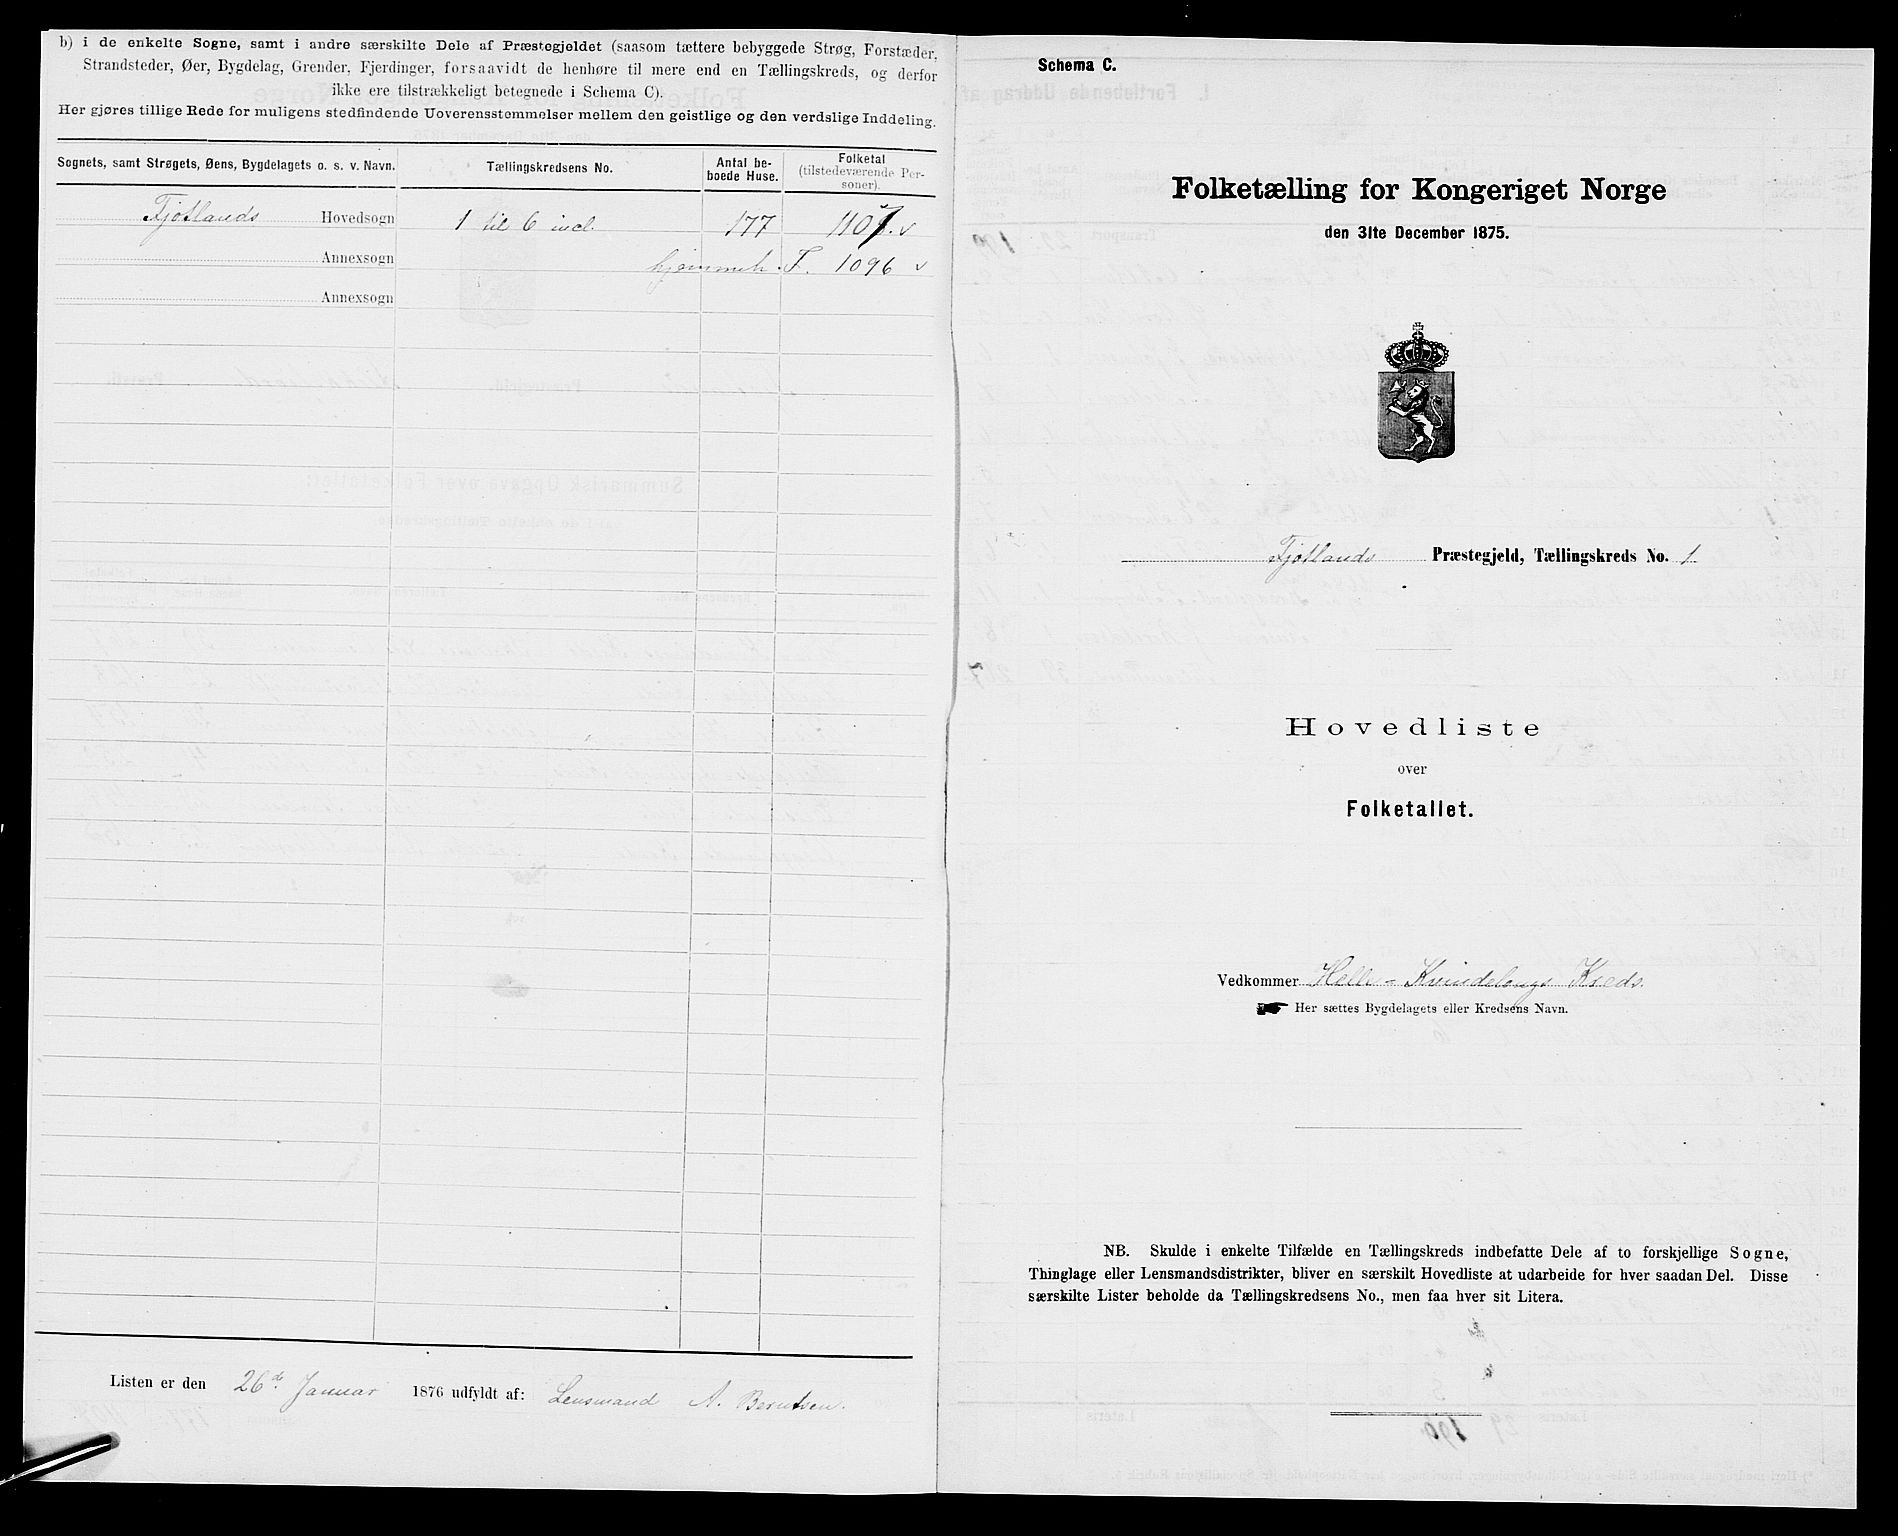 b) i de enkelte Sogne, samt i andre særskilte Dele af Præstegjeldet (saasom tættere bebyggede Strøg, Forstæder,
Strandsteder, Øer, Bygdelag, Grender, Fjerdinger, forsaavidt de henhøre til mere end en Tællingskreds, og derfor
ikke ere tilstrækkeligt betegnede i Schema C).
Her gjøres tillige Rede for muligens stedfindende Uoverensstemmelser mellem den geistlige og den verdslige Inddeling.
Sognets, samt Strøgets, Øens, Bygdelagets o. s. v. Navn. Tællingskredsens No. Antal be-boede Huse. Folketal (tilstedeværende Per-soner).
Fjotlands Hovedsogn 1 til 6 incl. 177 1107. v
Annexsogn hjemmeh. F. 1096 v
Annexsogn
Listen er den 26de Januar 1876 udfyldt af: Lensmand A. Berntsen.
Schema C.
Folketælling for Kongeriget Norge
den 31te December 1875.
Fjotlands Præstegjeld, Tællingskreds No. 1
Hovedliste
over
Folketallet.
Vedkommer Helle - Kvindelangs Kreds.
Her sættes Bygdelagets eller Kredsens Navn.
NB. Skulde i enkelte Tilfælde en Tællingskreds indbefatte Dele af to forskjellige Sogne,
Thinglage eller Lensmandsdistrikter, bliver en særskilt Hovedliste at udarbeide for hver saadan Del. Disse
særskilte Lister beholde da Tællingskredsens No., men faa hver sit Litera.